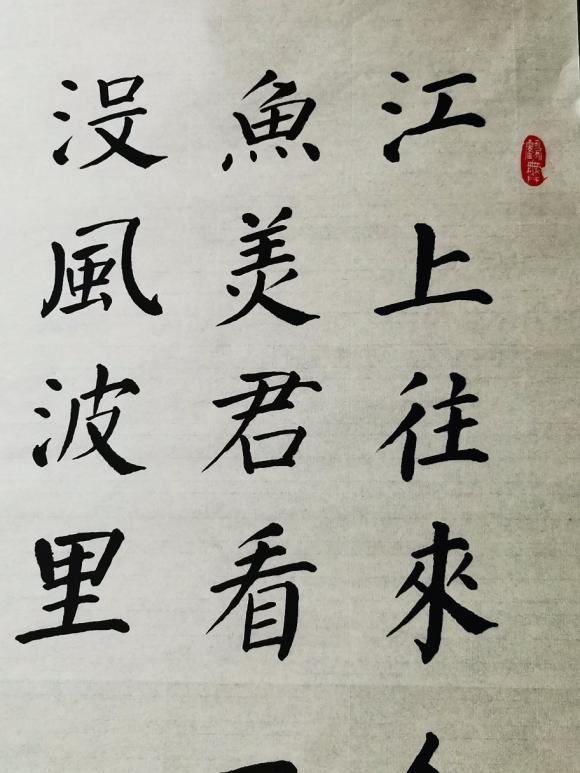 江上往來
魚羡君看
没風波里